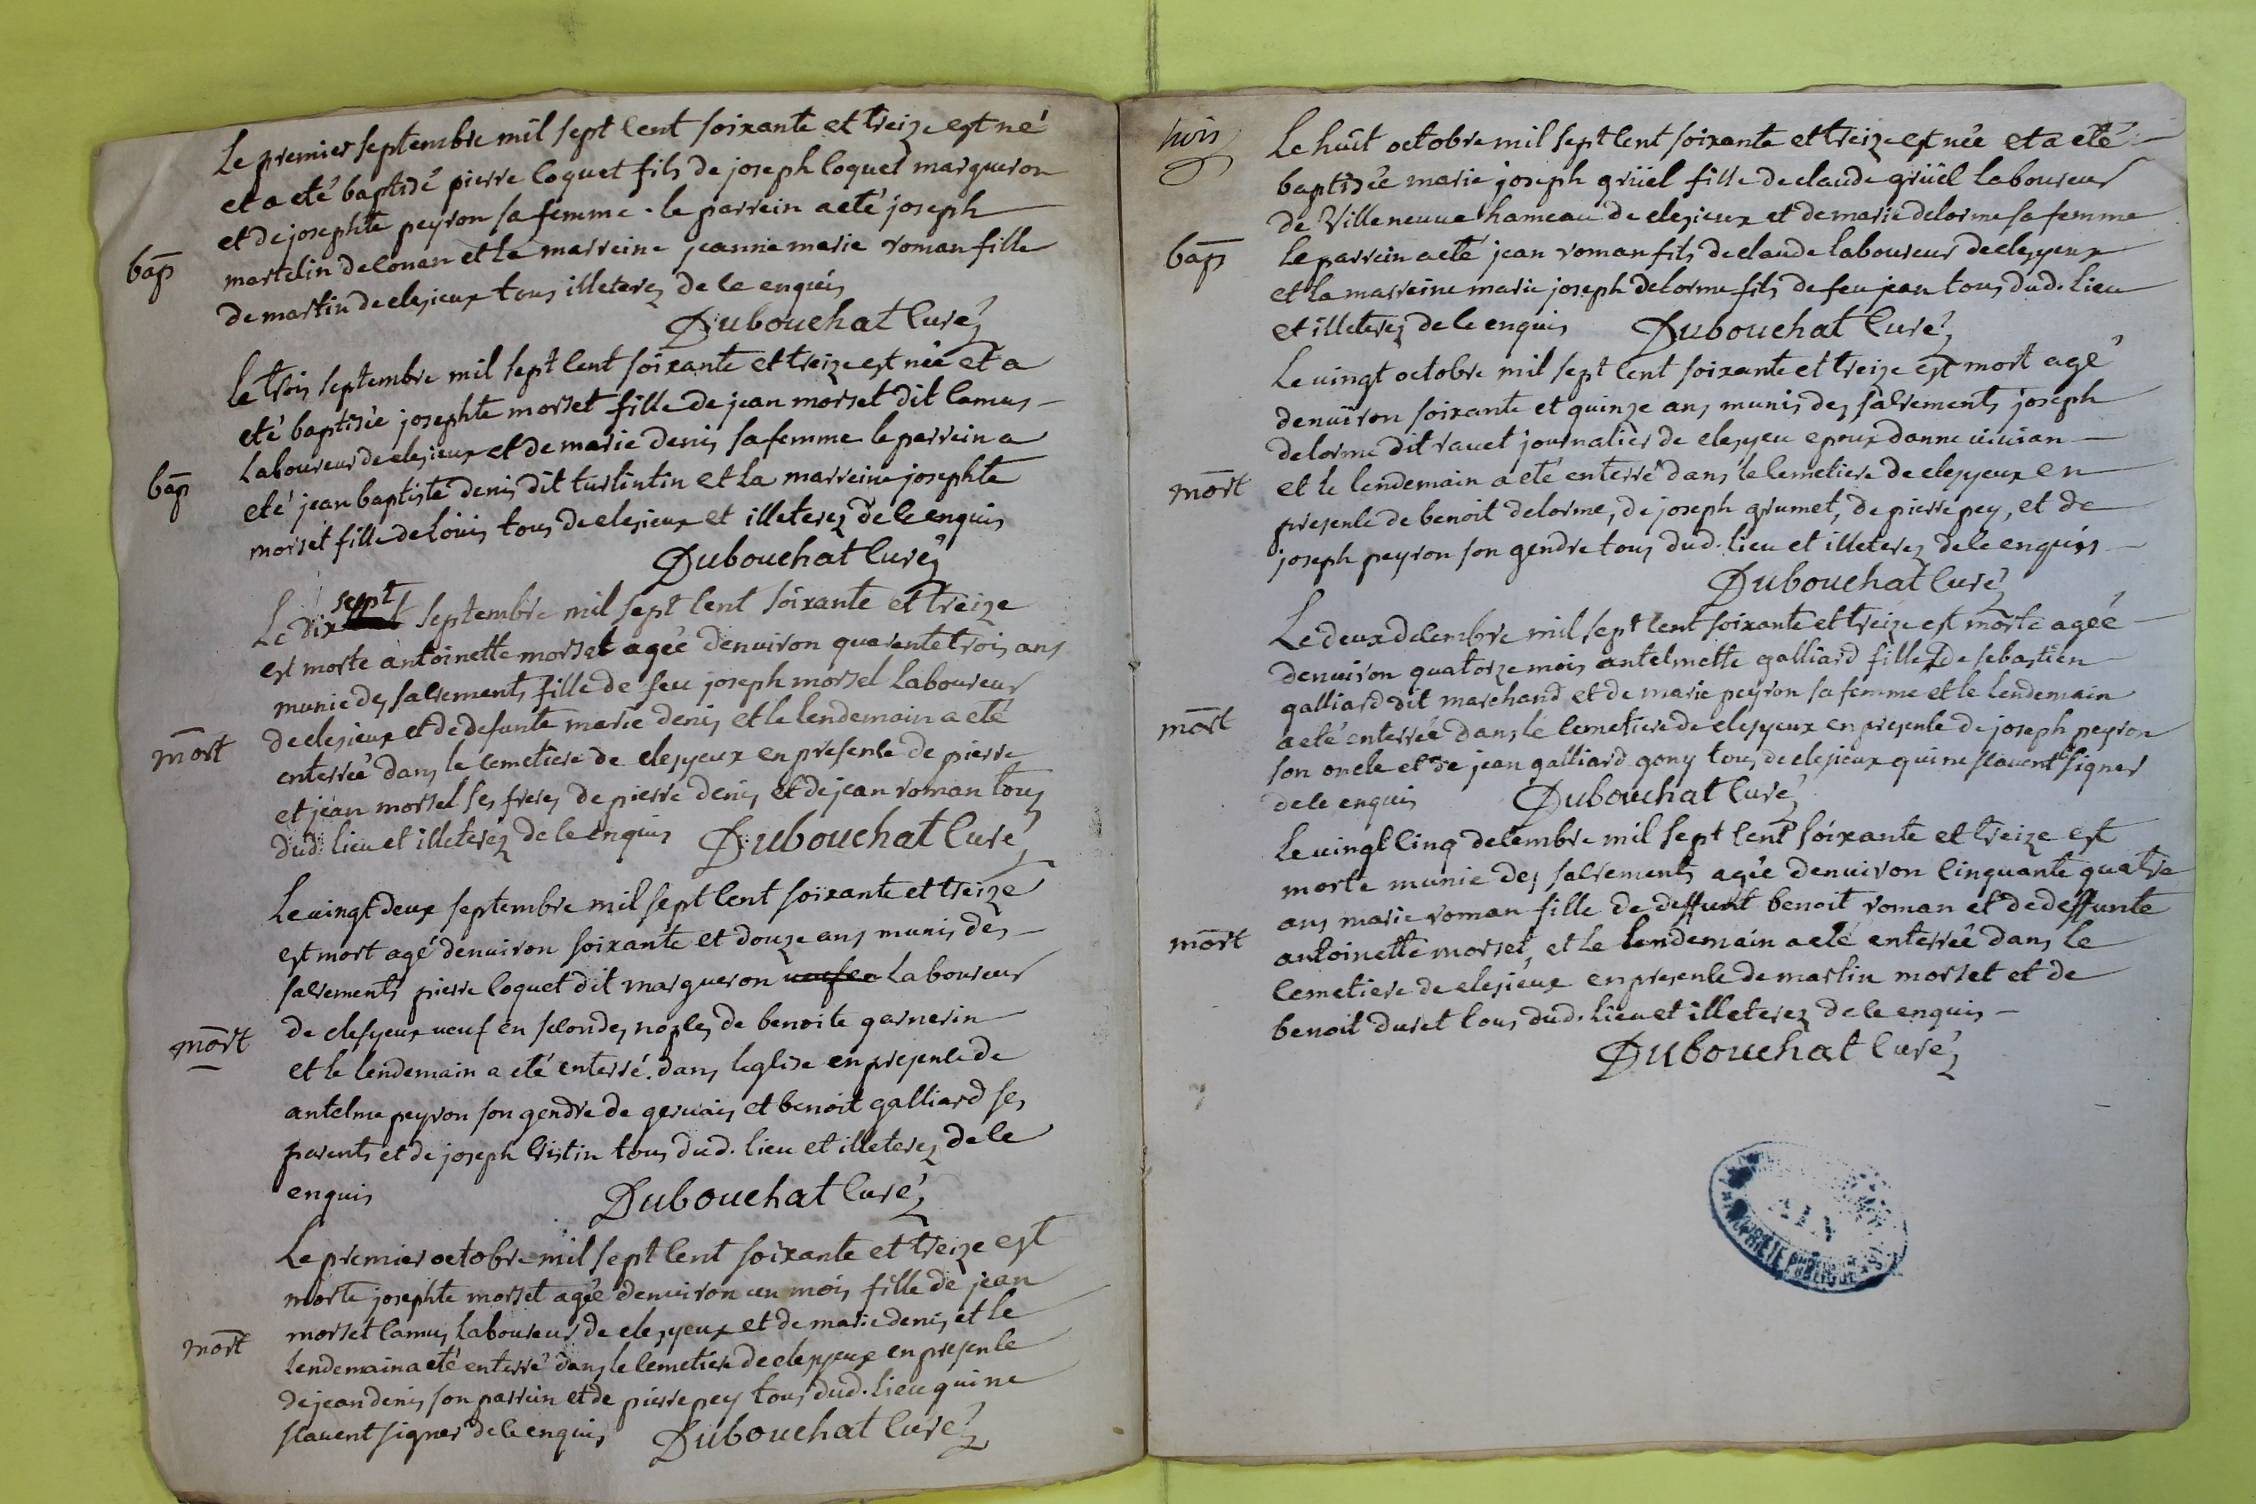 Le premier septembre mil sept cent soixante et treize est né
et a eté baptisé pierre coquet fils de joseph coquet margueron
et de josephte peyron sa femme. le parrein a eté joseph
bap martelin de conan et la marreine jeanne marie roman fille
de martin de clesieux tous illeterez de ce enquis
Dubouchat curé
le trois septembre mil sept cent soixante et treize est née et a
eté baptisée josephte morset fille de jean morset dit camus
Laboureur de clesieux et de marie denis sa femme le parrein a
bap eté jean baptiste denis dit turlintin et la marreine josephte
morset fille de loüis tous de clesieux et illeterez de ce enquis
Dubouchat curé
sept
Le dix septembre mil sept cent soixante et treize
est morte antoinette morset agée denuiron quarente trois ans
munie des sacrements fille de feu joseph morsel Laboureur
de clesieux et de defunte marie denis et le lendemain a eté
mort enterrée dans le cemetiere de clesyeux en presence de pierre
et jean morsel ses freres de pierre denis et de jean roman tous
dud. lieu et illeterez de ce enquis Dubouchat curé
Le uingt deux septembre mil sept cent soixante et treize
est mort agé denuiron soixante et douze ans munis des
sacrements pierre coquet dit margueron Laboureur
mort de clesyeux ueuf en secondes nopces de benoite garnerin
et le lendemain a eté enterré dans leglise en presence de
antelme peyron son gendre de geruais et benoit galliard ses
parents et de joseph cristin tous dud. lieu et illeterez de ce
enquis Dubouchat curé
Le premier octobre mil sept cent soixante et treize est
morte josephte morset agée denuiron un mois fille de jean
morset camus Laboureur de clesyeux et de marie denis et le
mort lendemain a eté enterré dans le cemetiere de clesyeux en presence
de jean denis son parrein et de pierre pey tous dud. lieu qui ne
scauent signer de ce enquis Dubouchat curé
Le huit octobre mil sept cent soixante et treize est née et a eté
baptisée marie joseph grüel fille de claude grüel Laboureur
de Villeneuue hameau de clesieux et de marie delorme sa femme
bap Le parrein a eté jean roman fils de claude laboureur de clesyeux
et la marreine marie joseph delorme fils de feu jean tous dud. lieu
et illeterez de ce enquis Dubouchat curé
Le uingt octobre mil sept cent soixante et treize est mort agé
denuiron soixante et quinze ans munis des sacrements joseph
delorme dit rauet journalier de clesyeu epoux danne uiuian
mort et le lendemain a eté enterré dans le cemetiere de clesyeux en
presence de benoit delorme, de joseph grumet, de pierre pey, et de
joseph peyron son gendre tous dud. lieu et illeterez de ce enquis
Dubouchat curé
Le deux decembre mil sept cent soixante et treize est morte agée
denuiron quatorze mois antelmette galliard fille de sebastien
galliard dit marchand et de marie peyron sa femme et le lendemain
mort a eté enterrée dans le cemetiere de clesyeux en presence de joseph peyron
son oncle et de jean galliard gony tous de clesieux qui ne scauent signer
de ce enquis Dubouchat curé
Le uingt cinq decembre mil sept cent soixante et treize est
morte munie des sacrements agée denuiron cinquante quatre
ans marie roman fille de deffunt benoit roman et de deffunte
mort antoinette morset, et le lendemain a eté enterrée dans le
cemetiere de clesieux en presence de martin morset et de
benoit duret tous dud. lieu et illeterez de ce enquis
Dubouchat curé
AIN
PROPRIETE PUBLIQUE